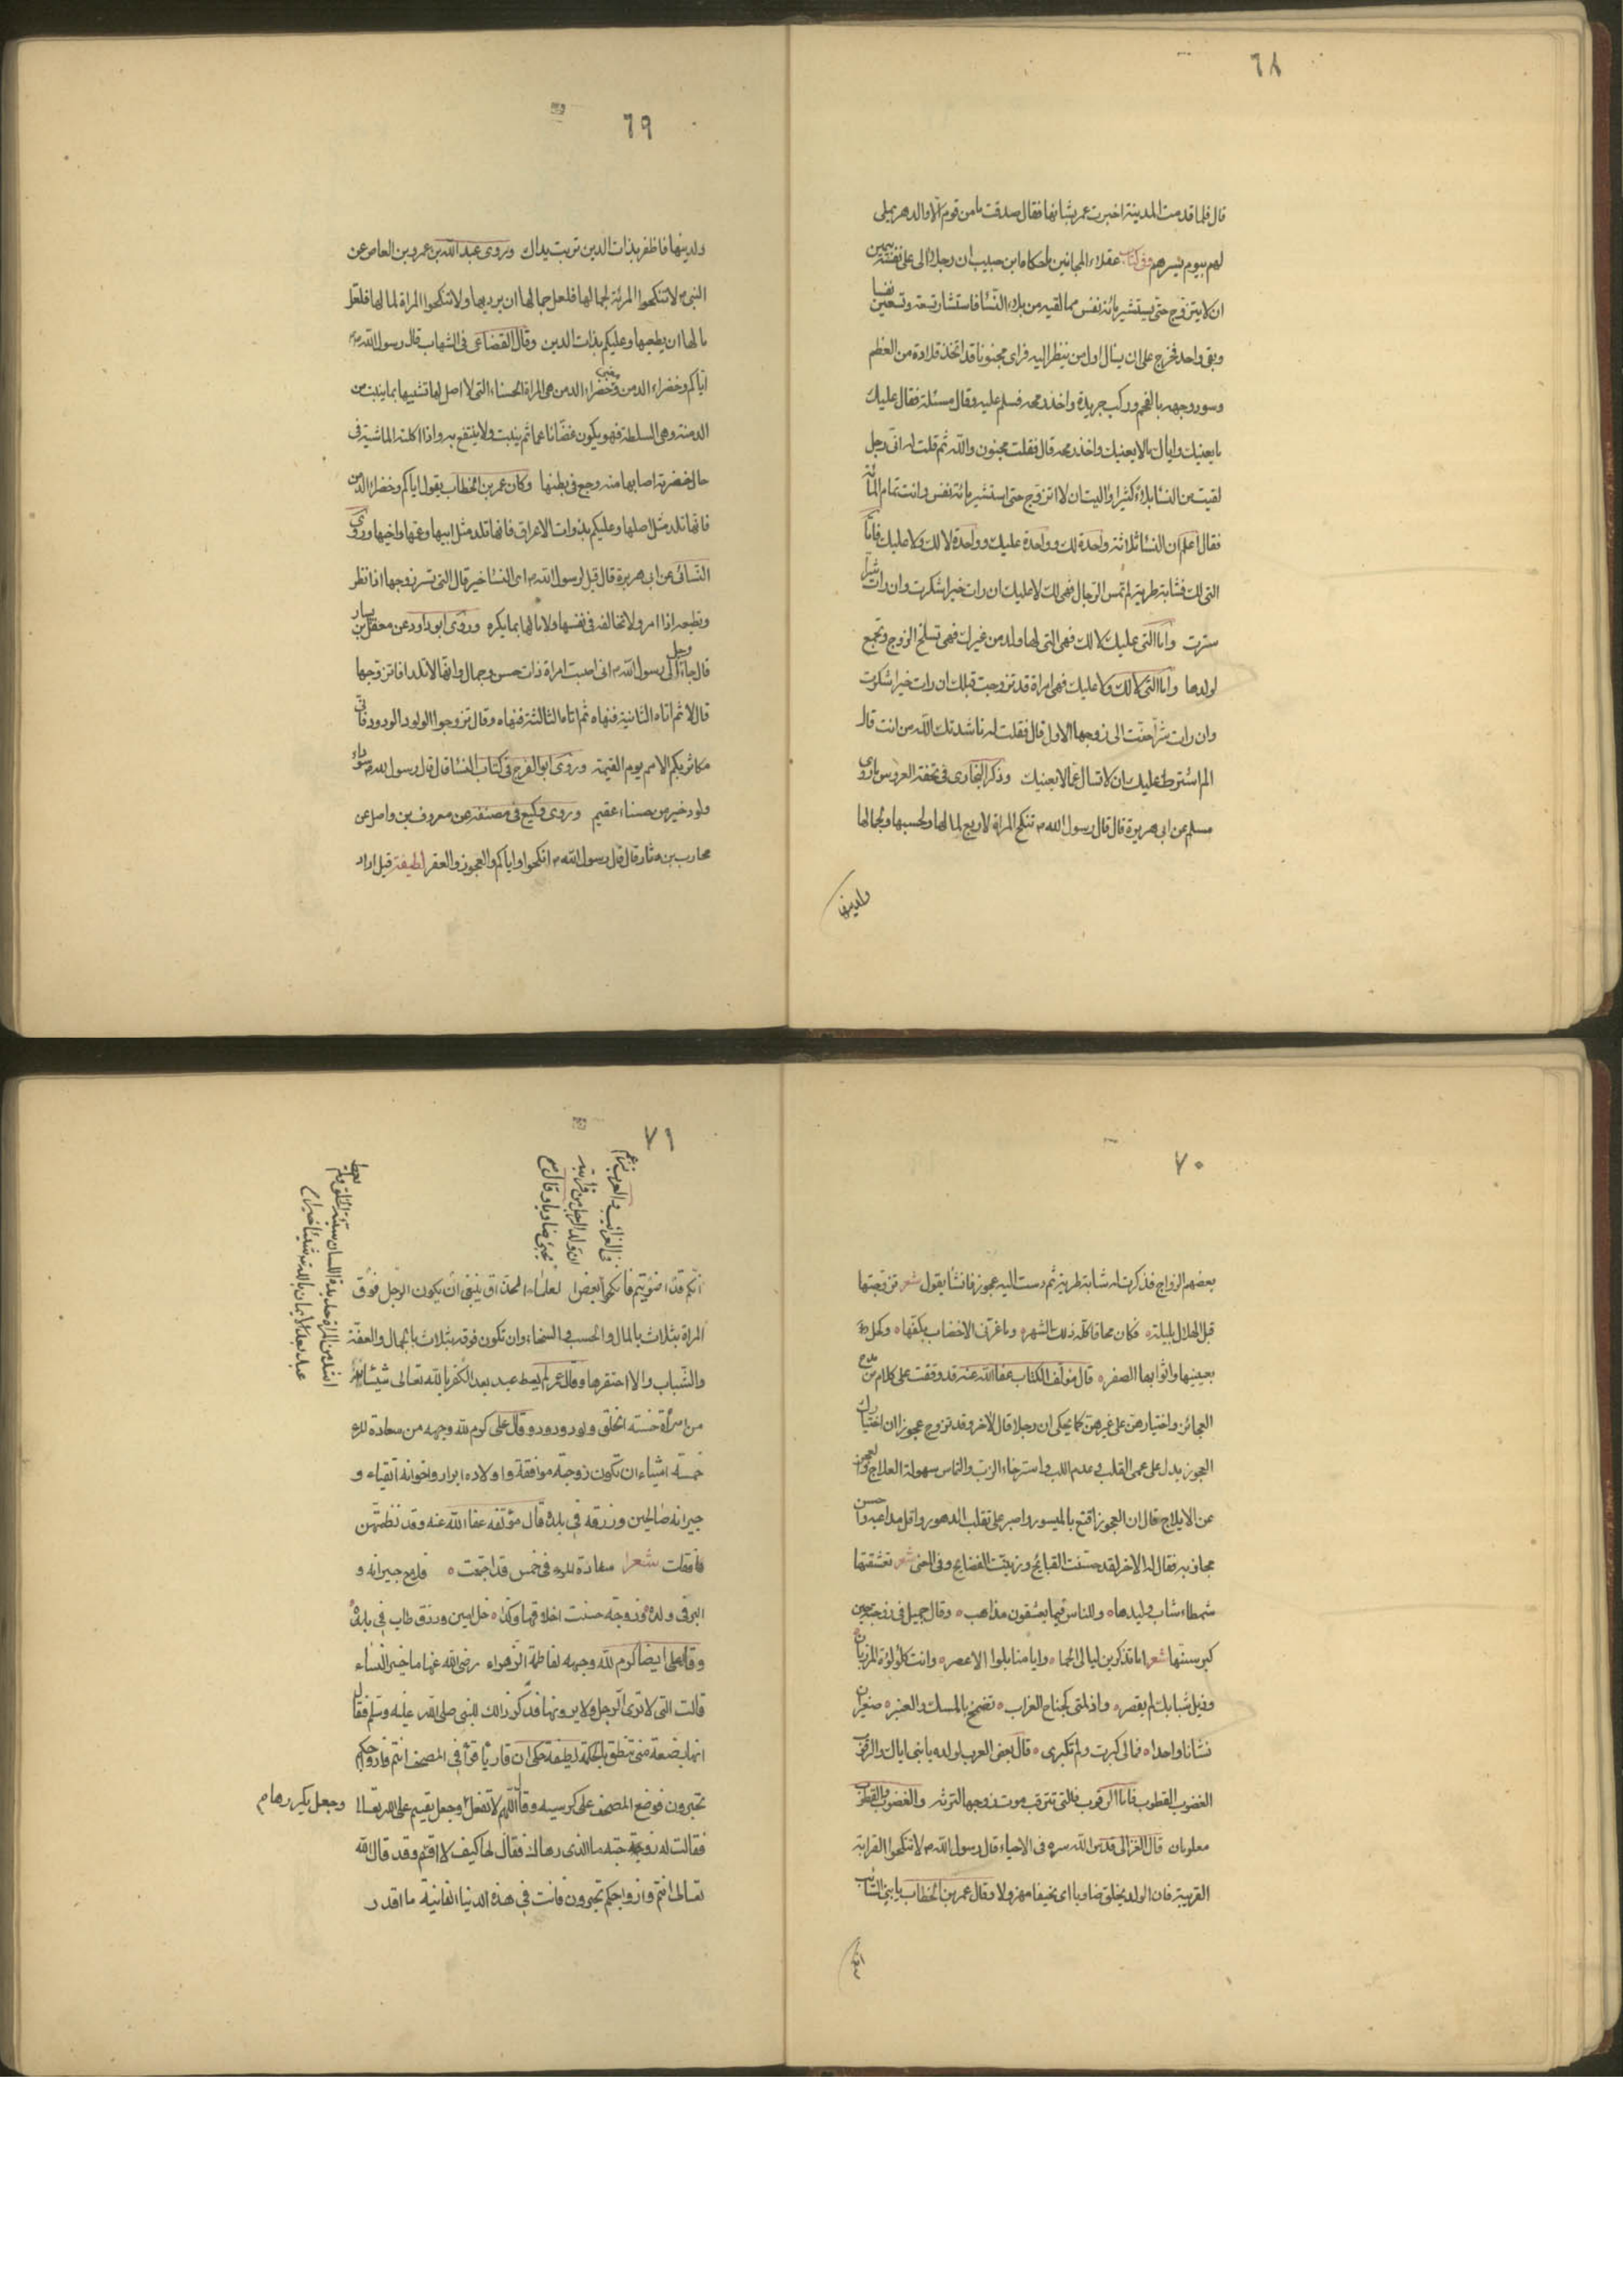 ٦٨
قال فلما قدمت المدينة اخبرت عمر بشانها فقال صدقت ما من قوم الا والدهر يملي
لهم بيوم يسرهم وفي كتاب عقلاء المجانين ما حكاه ابن حبيب ان رجلا آلى على نفسه بيمين
ان لا يتزوج حتى يستشير مائة نفس مما لقيه من بلاء النسا فاستشار تسعة وتسعين نفسا
وبقى واحد فخرج على ان يسأل اول من ينظر اليه فراى مجنونا قد اتخذ قلادة من العظم
وسود وجهه بالفحم وركب جريدة واخذ رمحه فسلم عليه وقال مسئلة فقال عليك
ما يعنيك واياك ما لا يعنيك واخذ رمحه قال فقلت مجنون والله ثم قلت له انى رجل
لقيت من النسا بلاء كثيرا واليت ان لا اتزوج حتى استشير مائة نفس وانت تمام المائة
فقال اعلم ان النسا ثلاثة واحدة لك وواحدة عليك وواحدة لا لك ولا عليك فاما
التي لك فشابة طرية لم تمس الرجال فهى لك لا عليك ان رات خيرا شكرت وان رات شرا
سترت واما التي عليك لا لك فهى التي لها ولد من غيرك فهى تسلخ الزوج وتجمع
لولدها واما التي لا لك ولا عليك فهى امراة قد تزوجت قبلك ان رات خيرا شكرت
وان رات شرا حنت الى زوجها الاول قال فقلت له ناشدتك الله من انت قال
الم اشترط عليك ان لا تسال عما لا يعنيك وذكر البخاوى في تحفة العروس ما روى
مسلم عن ابى هريرة قال قال رسول الله م تنكح المراة لاربع لمالها ولحسبها ولجمالها
ولدينها
٦٩
ولدينها فاظفر بذات الدين تربت يداك وروى عبد الله بن عمرو بن العاص عن
النبى م لا تنكحوا المرئة لجمالها فلعل جمالها ان يرديها ولا تنكحوا المراة لمالها فلعل
مالها ان يطغيها وعليكم بذات الدين وقال القضاعى فى الشهاب قال رسول الله م
اياكم وخضراء الدمن وخضراء الدمن هى المراة الحسناء التي لا اصل لها تشبيها بما ينبت من
الدمنة وهى السلطة فهو يكون غضا ناعما ثم ينبت ولا ينتفع به واذا اكلته الماشية فى
حال خضرته اصابها منه وجع فى بطنها وكان عمر بن الخطاب يقول اياكم وخضراء الدمن
فانها تلد مثل اصلها وعليكم بذوات الاعراق فانها تلد مثل ابيها وعمها واخيها وروى
النسائى عن ابى هريرة قال قيل لرسول الله م اى النسا خير قال التي تسر زوجها اذا نظر
وتطيعه اذا امر ولا تخالفه فى نفسها ولا مالها بما يكره وروى ابو داود عن معقل بن يسار
قال جاء رجل الى رسول الله م انى احببت امراة ذات حسن وجمال وانها لا تلد افاتزوجها
قال لا ثم اتاه الثانية فنهاه ثم اتاه الثالثة فنهاه وقال تزوجوا الولود الودود فانى
مكاثر بكم الامم يوم القيمة وروى ابو الفرج فى كتاب النسا قال قال رسول الله م سوداء
ولود خير من حسناء عقيم وروى وكيع فى مصنفه عن معروف بن واصل عن
محارب بن دثار قال قال رسول الله م انكحوا واياكم والعجوز والعقر لطيفة قيل اراد
٧٠
بعضهم الزواج فذكرت له شابة طرية ثم دست اليه عجوز فانشا يقول شعر تزوجتها
قبل الهلال بليلة ٥ فكان محاقا كله ذلك الشهر ٥ وما غرنى الا خضاب بكفها ٥ وكحل
بعينيها واثوابها الصفر ٥ قال مؤلف الكتاب عفا الله عنه قد وقفت على كلام من مدح
العجائز واختيارهن على غيرهن كما يحكى ان رجلا قال لاخر وقد تزوج عجوز ان اختيارك
العجوز يدل على عمى القلب وعدم اللب واسترخاء الزب والتماس سهولة العلاج والعجز
عن الايلاج فقال ان العجوز اقنع بالميسور واصبر على تقلب الدهور واقل مداعبة واحسن
مجاذبة فقال له الاخر لقد حسنت القبايح وزينت الفضايح وفى المعنى شعر تعشقتها
شمطاء شاب وليدها ٥ وللناس فيما يعشقون مذاهب ٥ وقال جميل فى زوجته حين
كبر سنها شعر اما تذكرين ليالى الحما ٥ وايامنا بلوا الاعصر ٥ وانت كلؤلؤة المرزبان
وذيل شبابك لم يقصر ٥ واذ لمتى كجناح الغراب ٥ تضمخ بالمسك والعنبر ٥ صغيران
نشانا واحدا ٥ فمالى كبرت ولم تكبرى ٥ قال بعض العرب لولده يا بنى اياك والرقوب
الغضوب القطوب فاما الرقوب فالتى تترقب موت زوجها لترثه والغضوب والقطوب
معلومان قال الغزالى قدس الله سره فى الاحياء قال رسول الله م لا تنكحوا القرابة
القريبة فان الولد يخلق ضاويا اى نحيفا مهزولا وقال عمر بن الخطاب يا بنى السائب
انكم
٧١
فى الغرائب والعرب تزعم
ان ولد الرجل من قرابته
يجئ ضاويا وقال م
انكم قد اضويتم فانكحوا بعض العلماء الحذاق ينبغى ان يكون الرجل فوق
المراة بثلاث بالمال والحسب والسخاء وان تكون فوقه بثلاث بالجمال والعفة
والشباب والا احتقرها وقال عمر لم يعط عبد بعد الكفر بالله تعالى شيئا
من امرأة حسنة الخلق ولود ودود وقال على كرم الله وجهه من سعادة المرء
خمسة اشياء ان تكون زوجته موافقة واولاده ابرار واخوانه اتقياء و
جيرانه صالحين ورزقه فى بلده قال مؤلفه عفا الله عنه وقد نظمتهن
فقلت شعرا سعادة المرء فى خمس قد اجتمعت ٥ صلح جيرانه و
البر فى ولده وزوجة حسنت اخلاقها وكذا ٥ خل امين ورزق طاب فى بلده
وقال على ايضا كرم الله وجهه لفاطمة الزهراء رضى الله عنها ما خير النساء
قالت التى لا ترى الرجل ولا يرونها فذكر ذالك للنبى صلى الله عليه وسلم فقال
انها بضعة منى تنطق بالحكمة لطيفة حكى ان قارئا قرأ فى المصحف انتم وازواجكم
تحبرون فوضع المصحف على كرسيه وقال اللهم لا تفعل وجعل يقسم على الله تعالى وجعل يكررها م
فقالت له زوجته ما الذى دهاك فقال لها كيف لا اقسم وقد قال الله
تعالى انتم وازواجكم تحبرون فانت فى هذه الدنيا الفانية ما اقدر